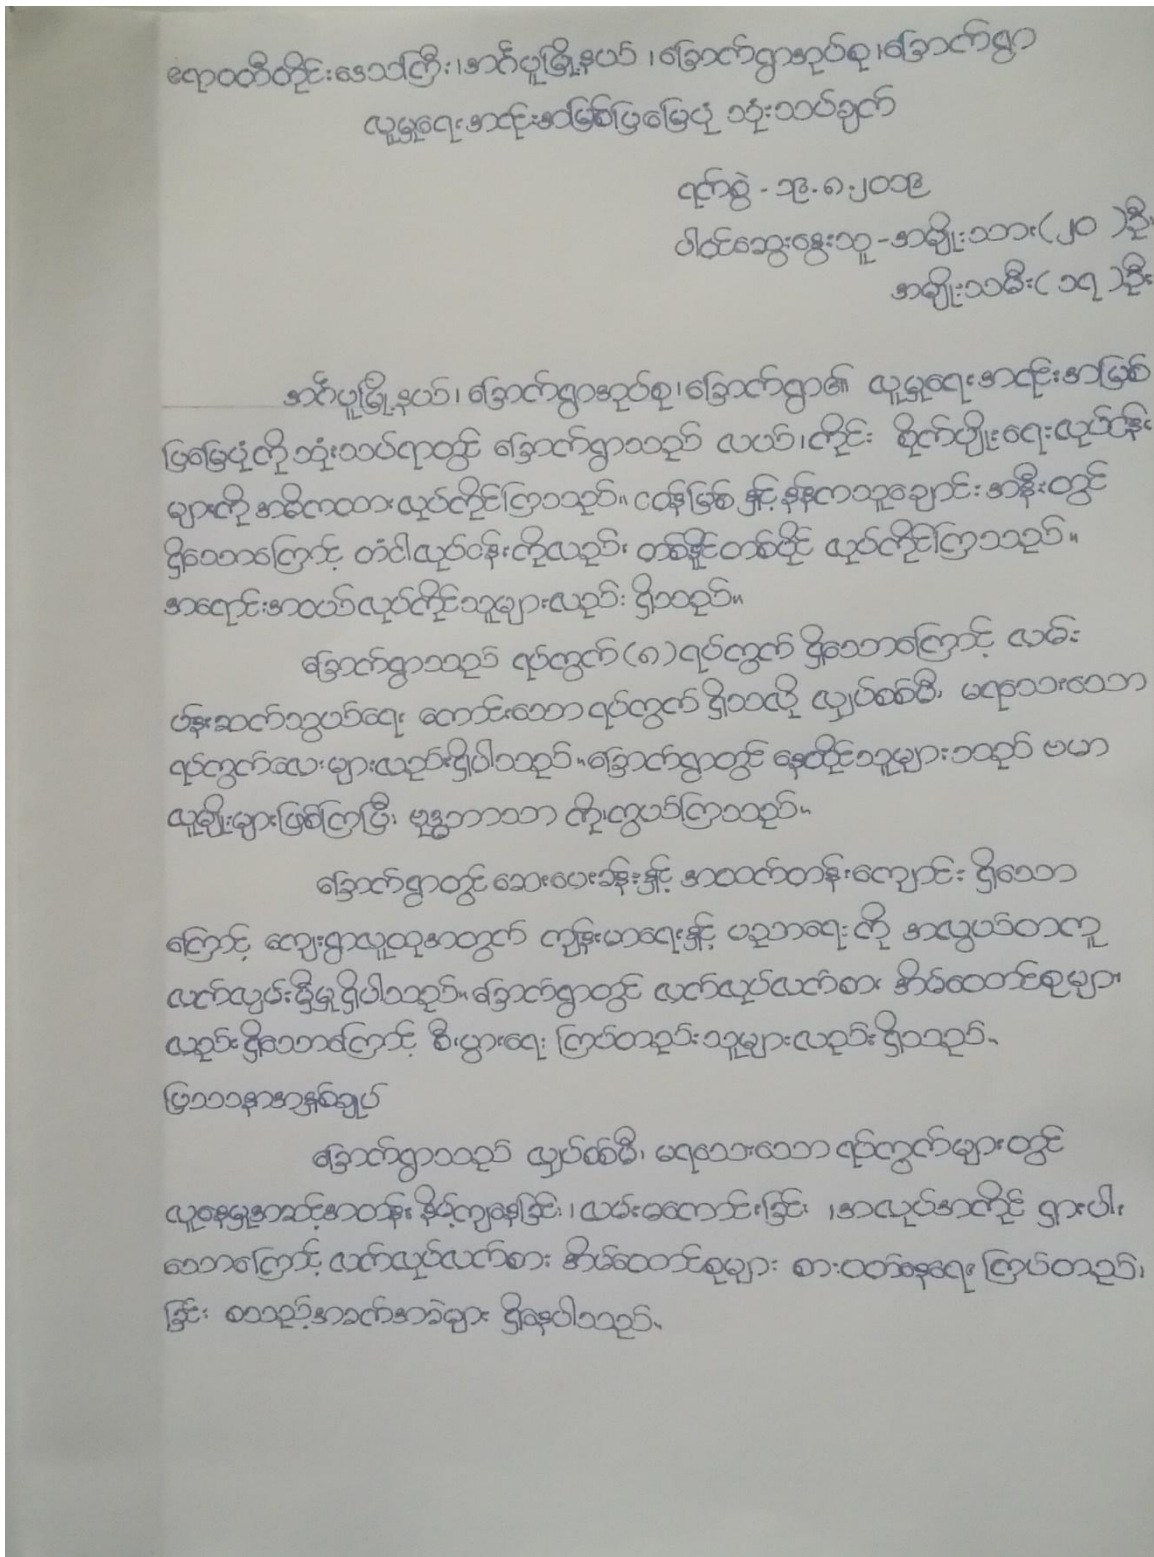 ဧရာဝတီတိုင်းဒေသကြီး၊အင်္ဂပူမြို့နယ်၊ခြောက်ရွာအုပ်စု၊ခြောက်ရွာ
လူမှုရေးအရင်းအမြစ်ပြမြေပုံ သုံးသပ်ချက်
ရက်စွဲ - ၁၉.၈.၂၀၁၉
ပါဝင်ဆွေးနွေးသူ - အမျိုးသား(၂၀ )ဦး
အမျိုးသမီး( ၁၇ )ဦး
အင်္ဂပူမြို့နယ်၊ ခြောက်ရွာအုပ်စု၊ခြောက်ရွာ၏ လူမှုရေးအရင်းအမြစ်
ပြမြေပုံကို သုံးသပ်ရာတွင် ခြောက်ရွာသည် လယ်၊ကိုင်း စိုက်ပျိုးရေးလုပ်ငန်း
များကို အဓိကထား လုပ်ကိုင်ကြသည်။ ငဝန်မြစ်နှင့် နန်ကသူချောင်း အနီးတွင်
ရှိသောကြောင့် တံငါလုပ်ငန်းကိုလည်း တစ်နိုင်တစ်ပိုင် လုပ်ကိုင်ကြသည်။
အရောင်းအဝယ်လုပ်ကိုင်သူများလည်း ရှိသည်။
ခြောက်ရွာသည် ရပ်ကွက်(၈)ရပ်ကွက် ရှိသောကြောင့် လမ်း
ပန်းဆက်သွယ်ရေး ကောင်းသောရပ်ကွက် ရှိသလို လျှပ်စစ်မီး မရသေးသော
ရပ်ကွက်လေးများလည်းရှိပါသည်။ခြောက်ရွာတွင် နေထိုင်သူများသည် ဗမာ
လူမျိုးများဖြစ်ကြပြီး ဗုဒ္ဓဘာသာ ကိုးကွယ်ကြသည်။
ခြောက်ရွာတွင် ဆေးပေးခန်းနှင့် အထက်တန်းကျောင်း ရှိသော
ကြောင့် ကျေးရွာလူထုအတွက် ကျန်းမာရေးနှင့် ပညာရေး ကို အလွယ်တကူ
လက်လှမ်းမှီမှုရှိပါသည်။ ခြောက်ရွာတွင် လက်လုပ်လက်စား အိမ်ထောင်စုများ
လည်းရှိသောကြောင့် စီးပွားရေး ကြပ်တည်းသူများလည်းရှိသည်။
ပြဿနာအနှစ်ချုပ်
ခြောက်ရွာသည် လျှပ်စစ်မီး မရသေးသော ရပ်ကွက်များတွင်
လူနေမှုအဆင့်အတန်း နိမ့်ကျနေခြင်း၊ လမ်းမကောင်းခြင်း ၊အလုပ်အကိုင် ရှားပါး
သောကြောင့် လက်လုပ်လက်စား အိမ်ထောင်စုများ စားဝတ်နေရေး ကြပ်တည်း
ခြင်း စသည့်အခက်အခဲများ ရှိနေပါသည်။